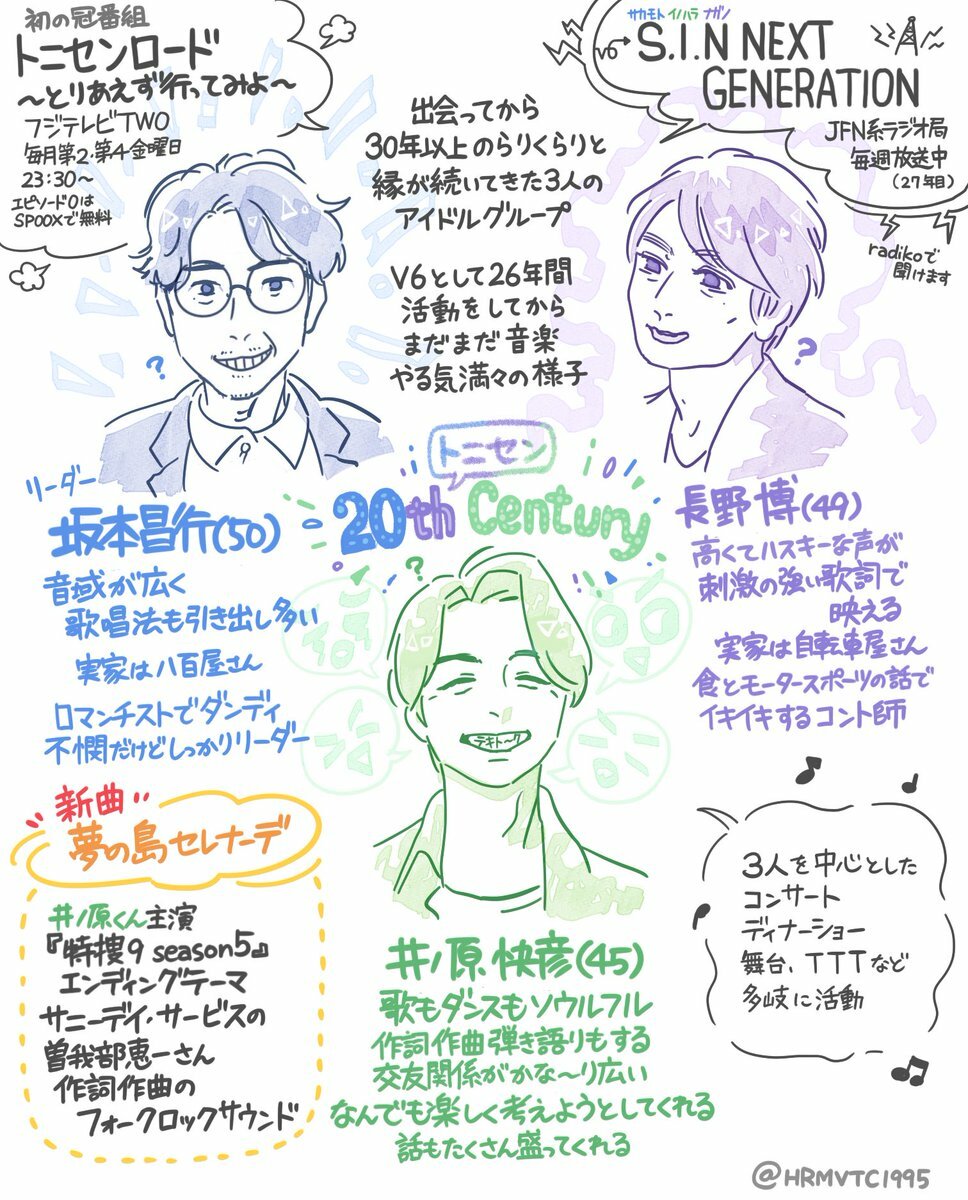 初の冠番組
トニセンロード
〜とりあえず行ってみよ〜
フジテレビTWO
毎月第2・第4金曜日
23:30〜
エピソード0は
SPOOXで無料
サカモト イノハラ ナガノ
V6→S.I.N NEXT
GENERATION
JFN系ラジオ局
毎週放送中
(27年目)
radikoで
聞けます
出会ってから
30年以上のらりくらりと
縁が続いてきた3人の
アイドルグループ
V6として26年間
活動をしてから
まだまだ音楽
やる気満々の様子
?
?
トニセン
20th Century
リーダー
坂本昌行(50)
音域が広く
歌唱法も引き出し多い
実家は八百屋さん
ロマンチストでダンディ
不憫だけどしっかりリーダー
長野博(49)
高くてハスキーな声が
刺激の強い歌詞で
映える
実家は自転車屋さん
食とモータースポーツの話で
イキイキするコント師
?
テキトーク
井ノ原快彦(45)
歌もダンスもソウルフル
作詞作曲弾き語りもする
交友関係がかな〜り広い
なんでも楽しく考えようとしてくれる
話もたくさん盛ってくれる
新曲
夢の島セレナーデ
井ノ原くん主演
『特捜9 season5』
エンディングテーマ
サニーデイ・サービスの
曽我部恵一さん
作詞作曲の
フォークロックサウンド
3人を中心とした
コンサート
ディナーショー
舞台、TTTなど
多岐に活動
@HRMVTC1995